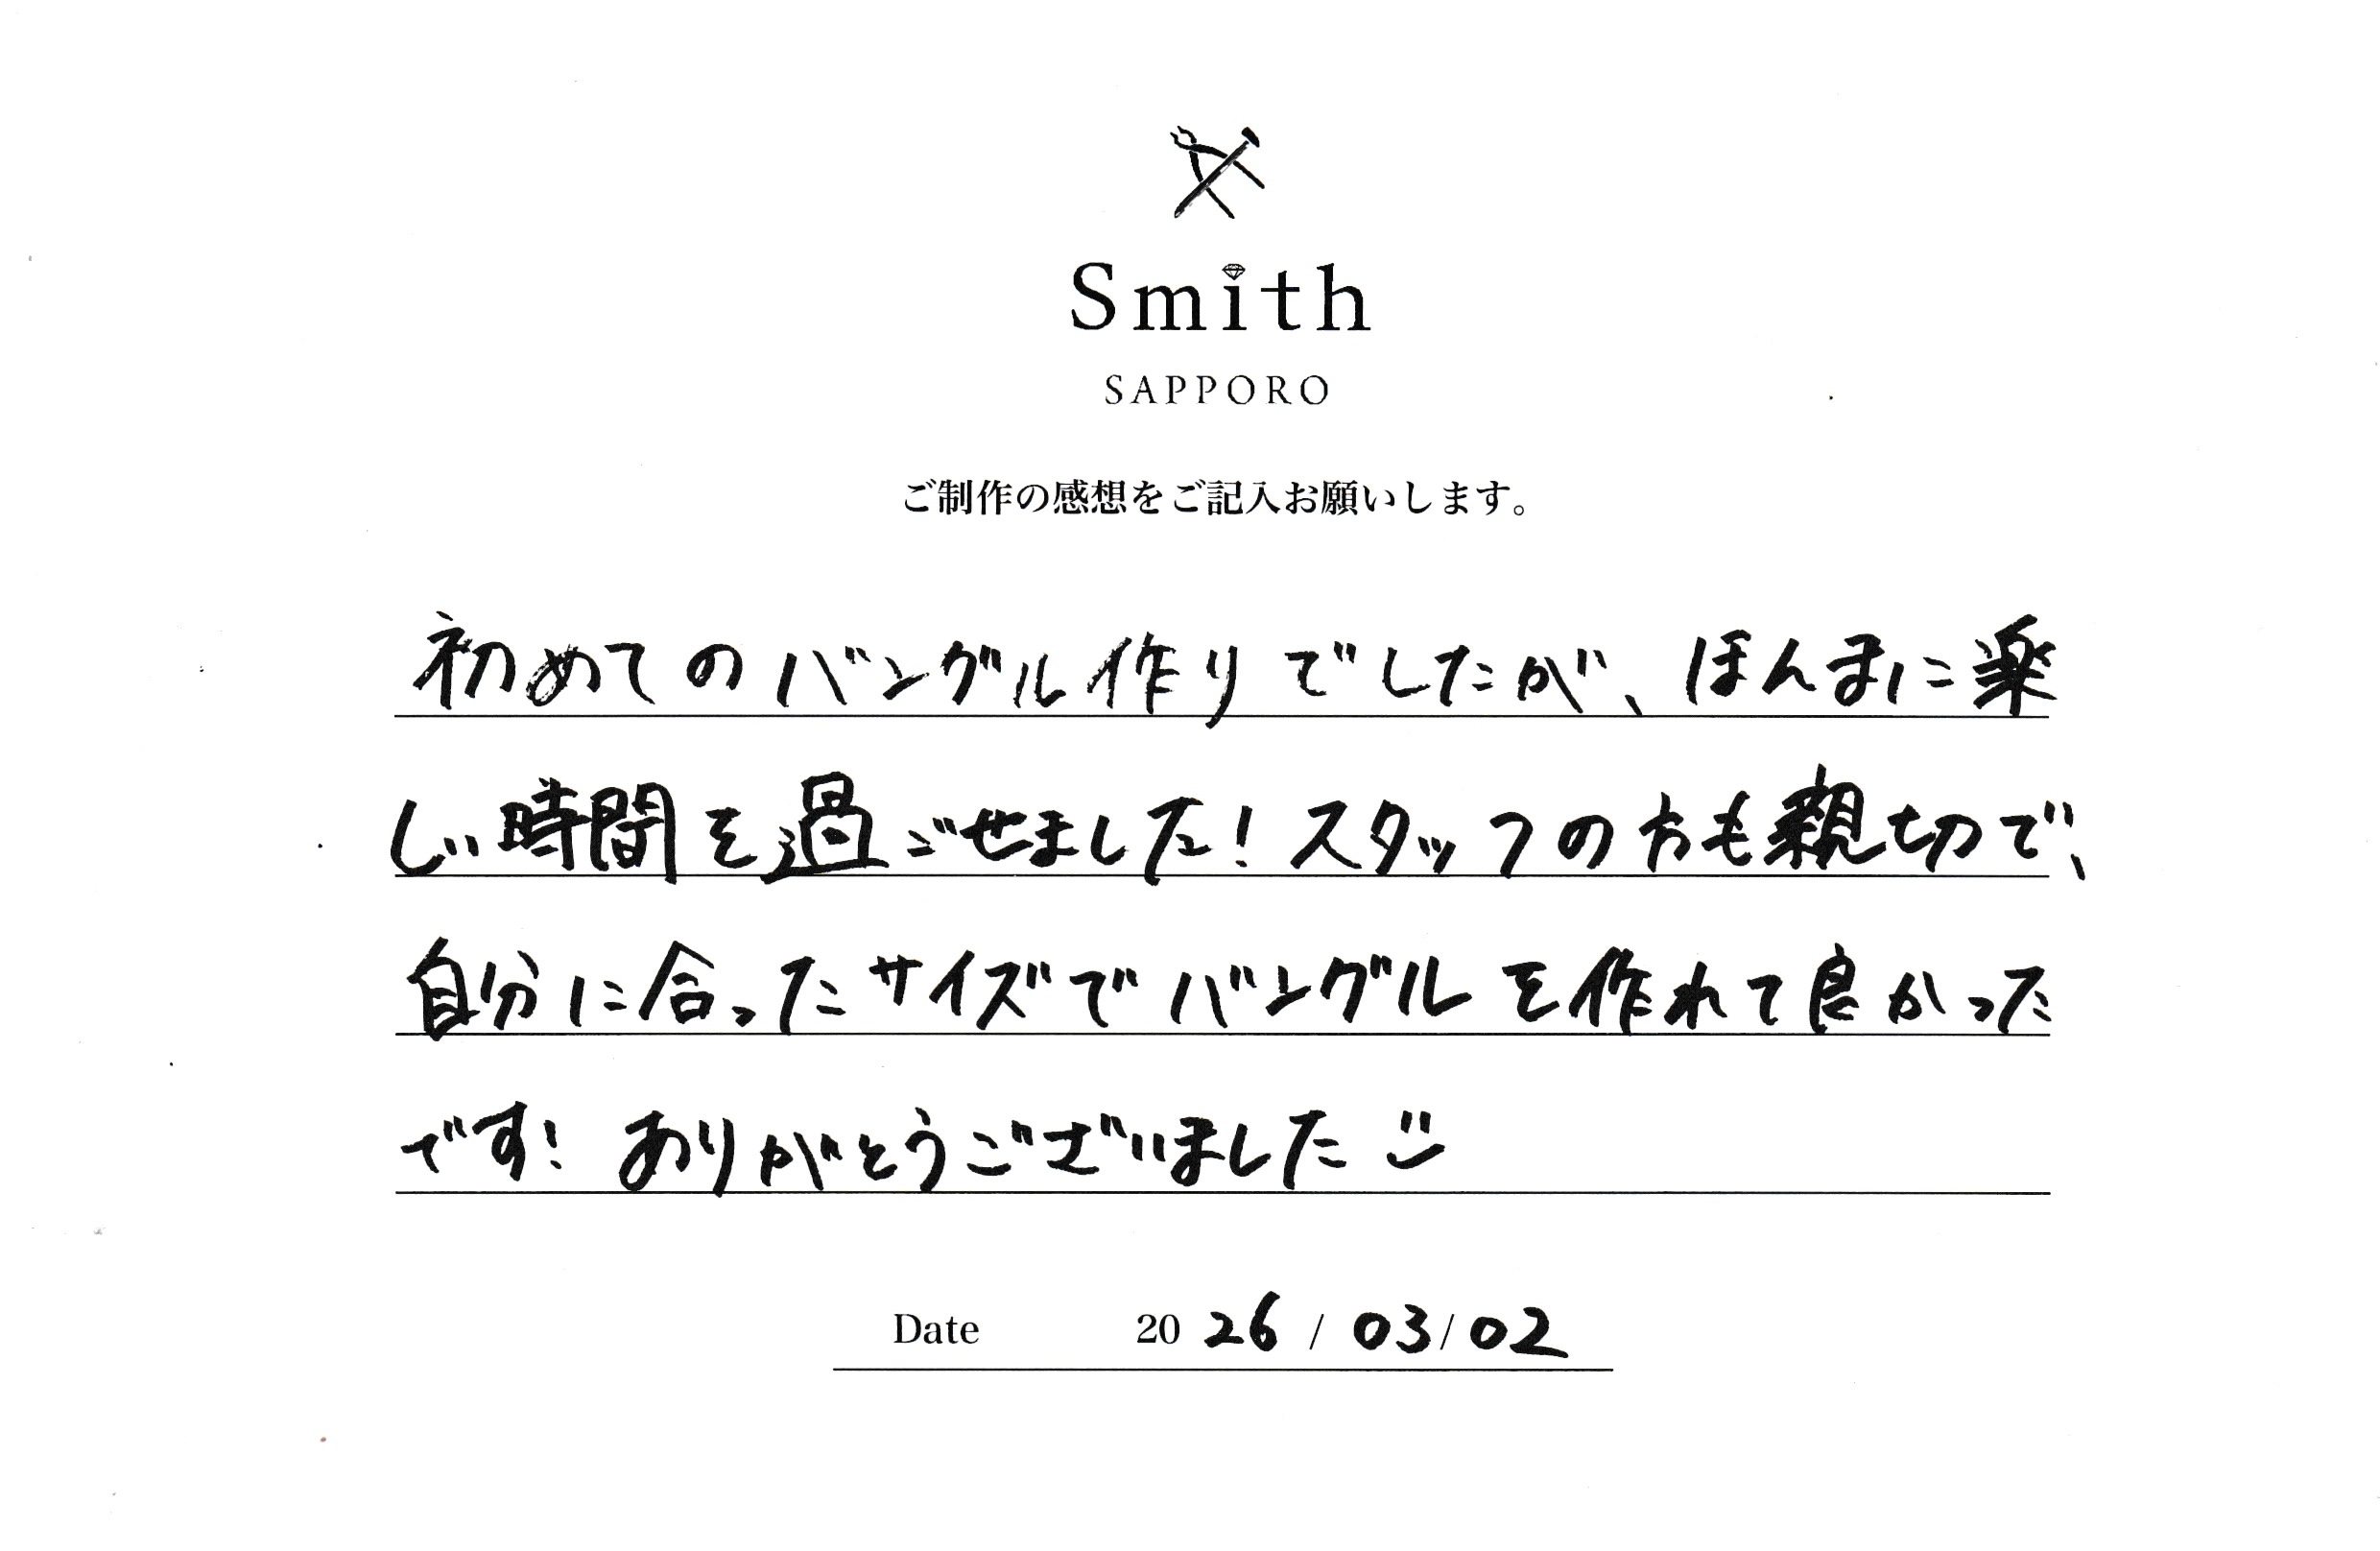 Smith
SAPPORO
ご制作の感想をご記入お願いします。
初めてのバングル作りでしたが、ほんまに楽
しい時間を過ごせました!スタッフの方も親切で、
自分に合ったサイズでバングルを作れて良かった
です!ありがとうございました
Date 2026/03/02